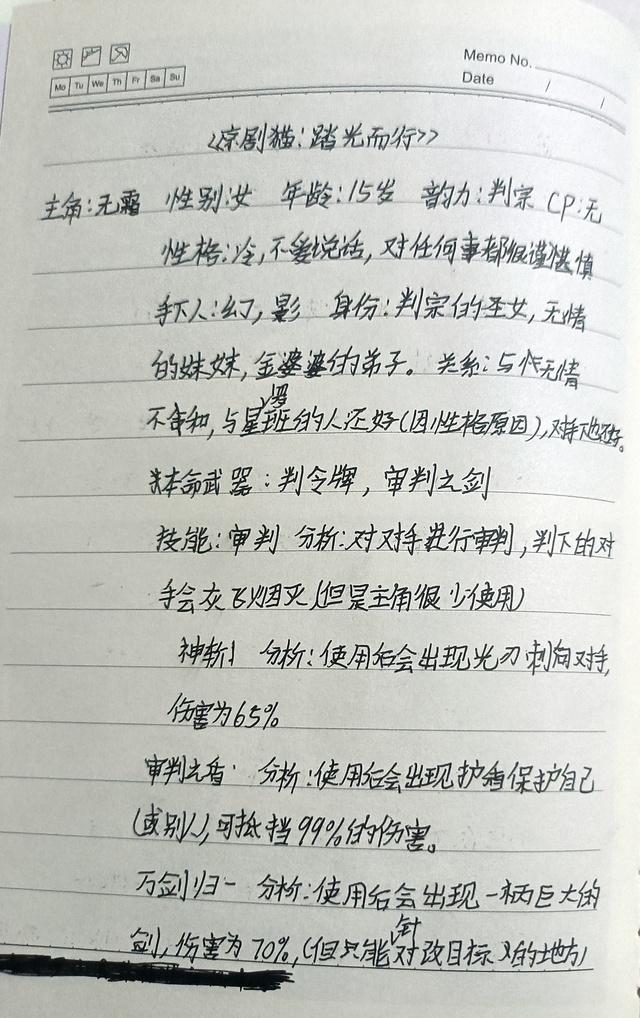 Memo No.
Mo Tu We Th Fr Sa Su
Date / /
《京剧猫：踏光而行》
主角：无霜 性别：女 年龄：15岁 韵力：判宗 CP：无
性格：冷，不爱说话，对任何事都很谨慎
手下人：幻，影 身份：判宗的圣女，无情
的妹妹，金婆婆的弟子。 关系：与无情
不和，与星罗班的人还好（因性格原因），对手下也还好。
本命武器：判令牌，审判之剑
技能：审判 分析：对对手进行审判，判下的对
手会灰飞烟灭（但是主角很少使用）
神斩 分析：使用后会出现光刃刺向对手，
伤害为65%
审判光盾： 分析：使用后会出现护盾保护自己
（或别人），可抵挡99%的伤害。
万剑归一 分析：使用后会出现一柄巨大的
剑，伤害为70%，（但只能针对改目标的地方）